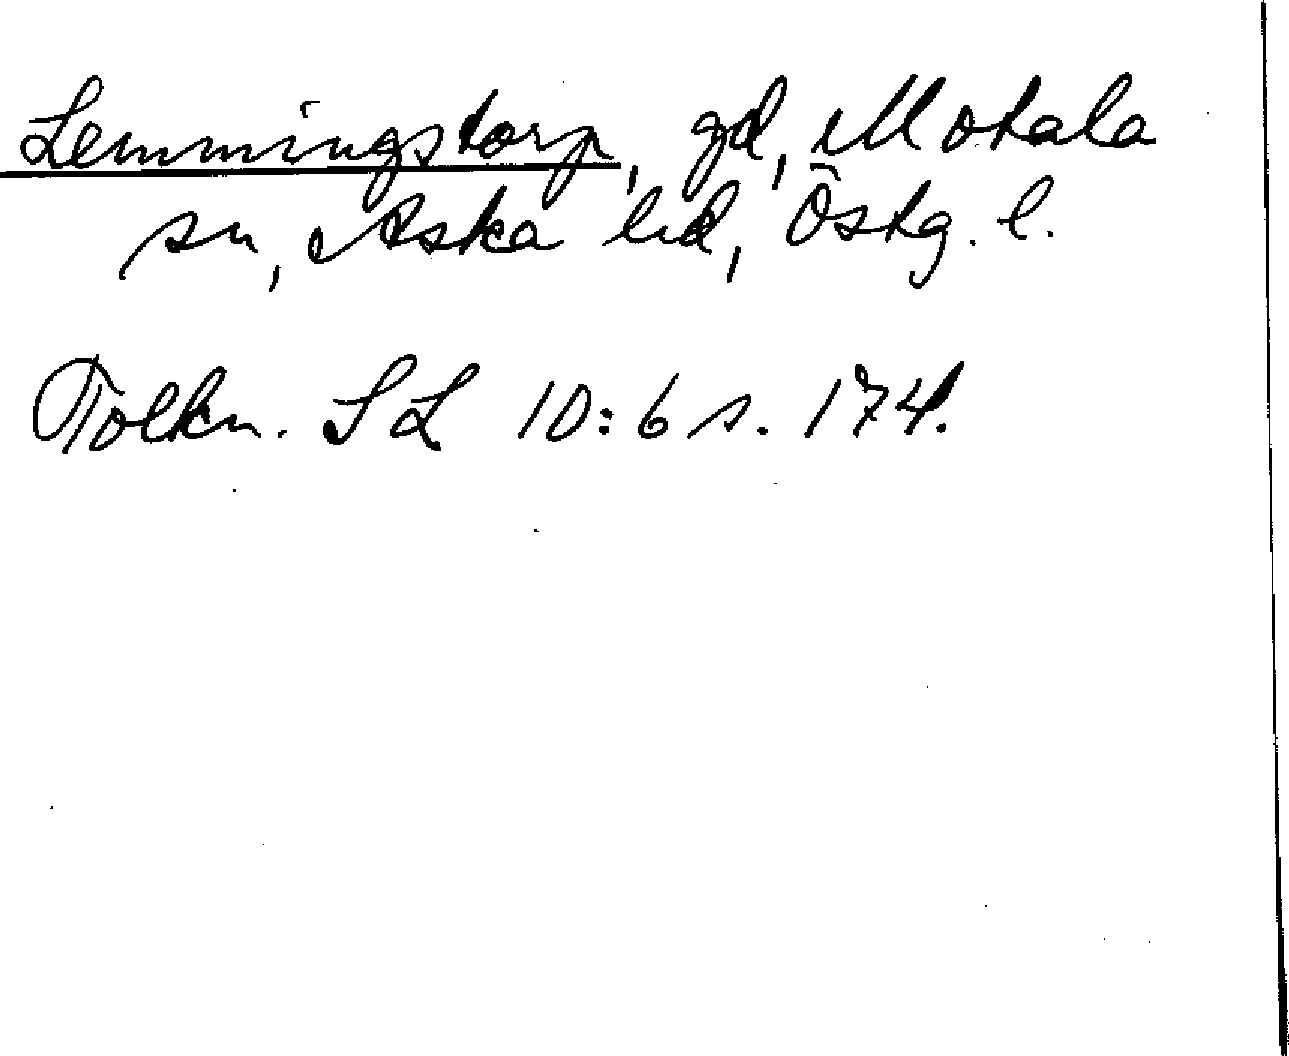 Lemmingstorp, gd, Motala
sn, Aska hd, Östg. l.
Tolkn. SL 10:6 s. 174.